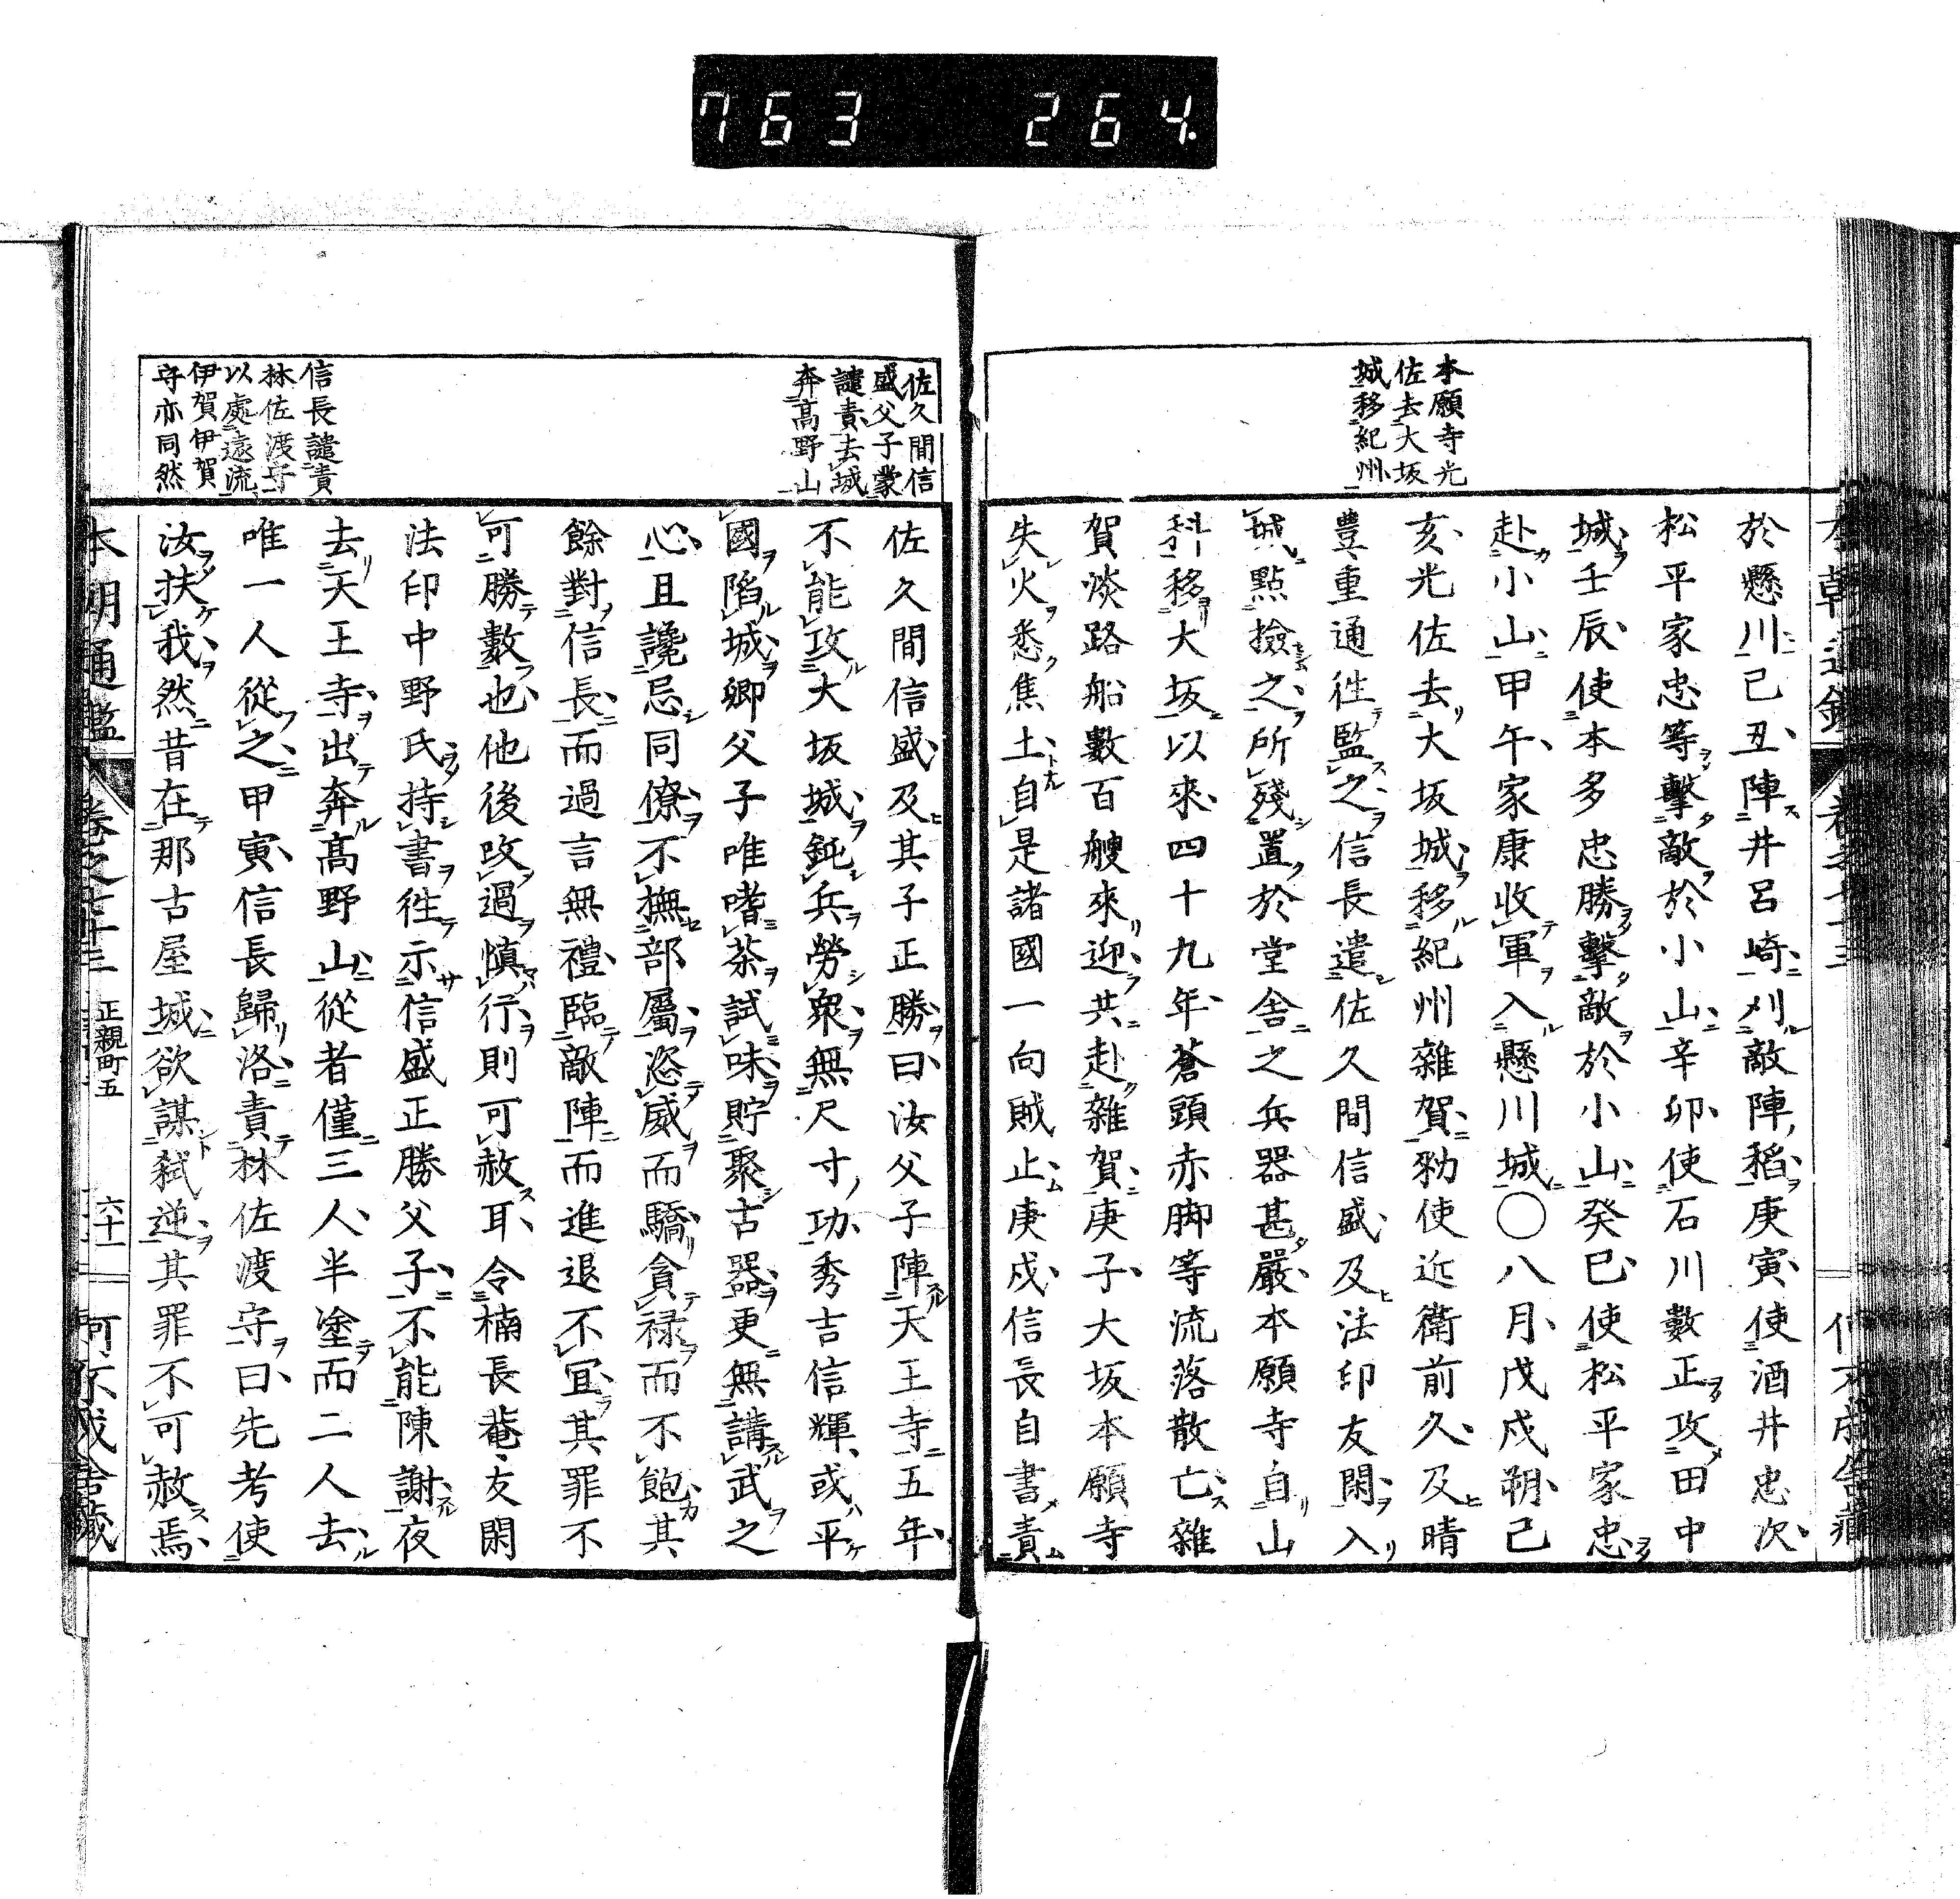 763 264.
本願寺光
佐去大坂
城移紀州
於懸川己丑陣井呂崎刈敵陣稻庚寅使酒井忠次
松平家忠等擊敵於小山辛卯使石川數正攻田中
城壬辰使本多忠勝擊敵於小山癸巳使松平家忠
赴小山甲午家康收軍入懸川城〇八月戊戌朔己
亥光佐去大坂城移紀州雜賀勅使近衛前久及晴
豊重通往監之信長遣佐久間信盛及法印友閑入
城點撿之所殘置於堂舍之兵器甚嚴本願寺自山
科移大坂以來四十九年蒼頭赤脚等流落散亡雜
賀淡路船數百艘來迎共赴雜賀庚子大坂本願寺
失火悉焦土自是諸國一向賊止庚戌信長自書責
佐久間信
盛父子蒙
譴責去城
奔高野山
信長譴責
林佐渡守
以處遠流
伊賀伊賀
守亦同然
佐久間信盛及其子正勝曰汝父子陣天王寺五年
不能攻大坂城鈍兵勞衆無尺寸功秀吉信輝或平
國陷城卿父子唯嗜茶試味貯聚古器更無講武之
心且讒忌同僚不撫部屬恣威而驕貪禄而不飽其
餘對信長而過言無禮臨敵陣而進退不宜其罪不
可勝數也他後改過慎行則可赦耳令楠長菴友閑
法印中野氏持書往示信盛正勝父子不能陳謝夜
去天王寺出奔高野山從者僅三人半塗而二人去
唯一人從之甲寅信長歸洛責林佐渡守曰先考使
汝扶我然昔在那古屋城欲謀弑逆其罪不可赦焉
本朝通鑑 卷之七十三 正親町五 六十一